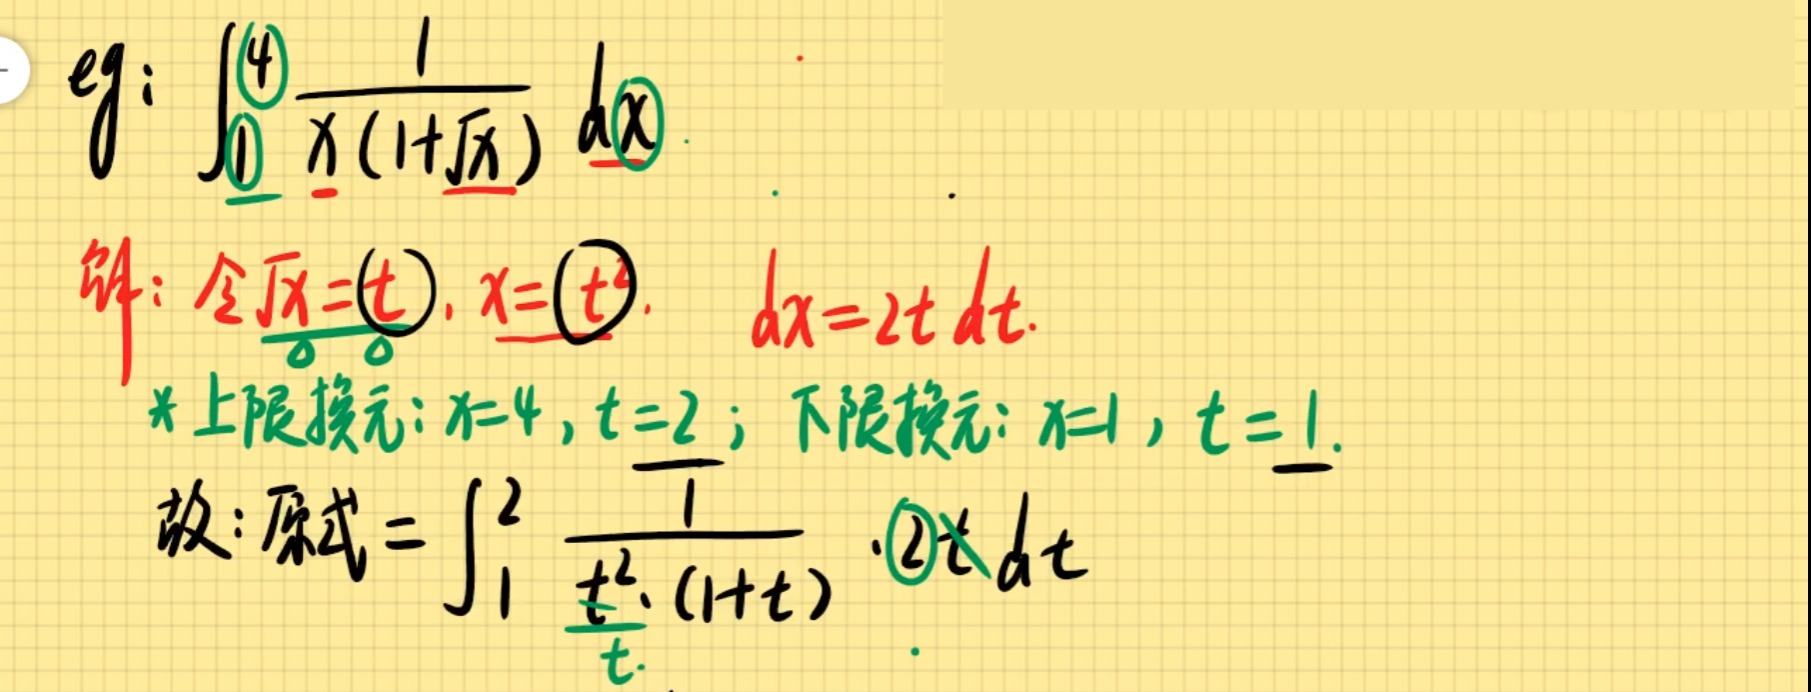 eg: ∫₁⁴ 1/(x(1+√x)) dx
解: 令√x=t, x=t². dx=2t dt.
*上限换元: x=4, t=2; 下限换元: x=1, t=1.
故: 原式=∫₁² 1/(t²·(1+t)) ·2t dt
t.